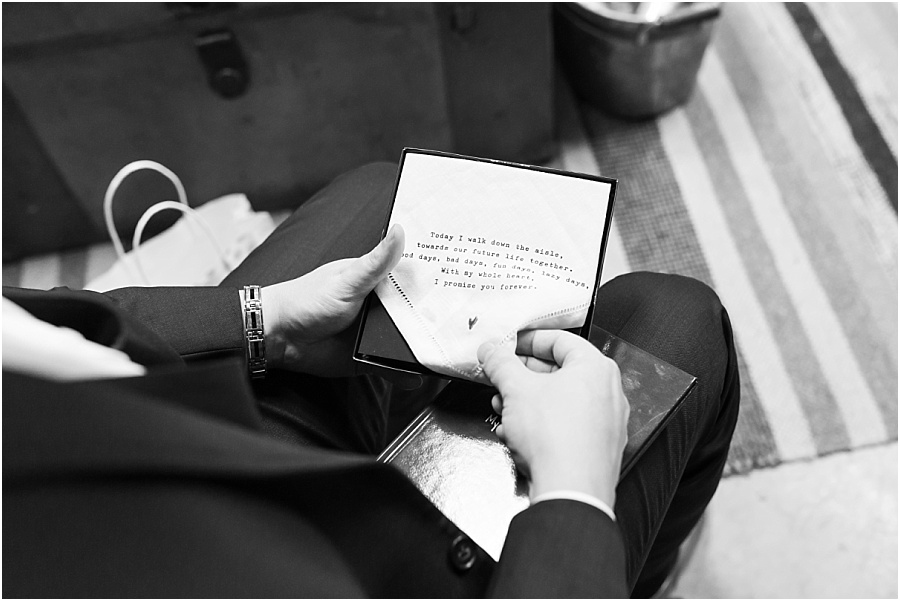 Today I walk down the aisle,
towards our future life together.
ood days, bad days, fun days, lazy days,
With my whole heart,
I promise you forever.